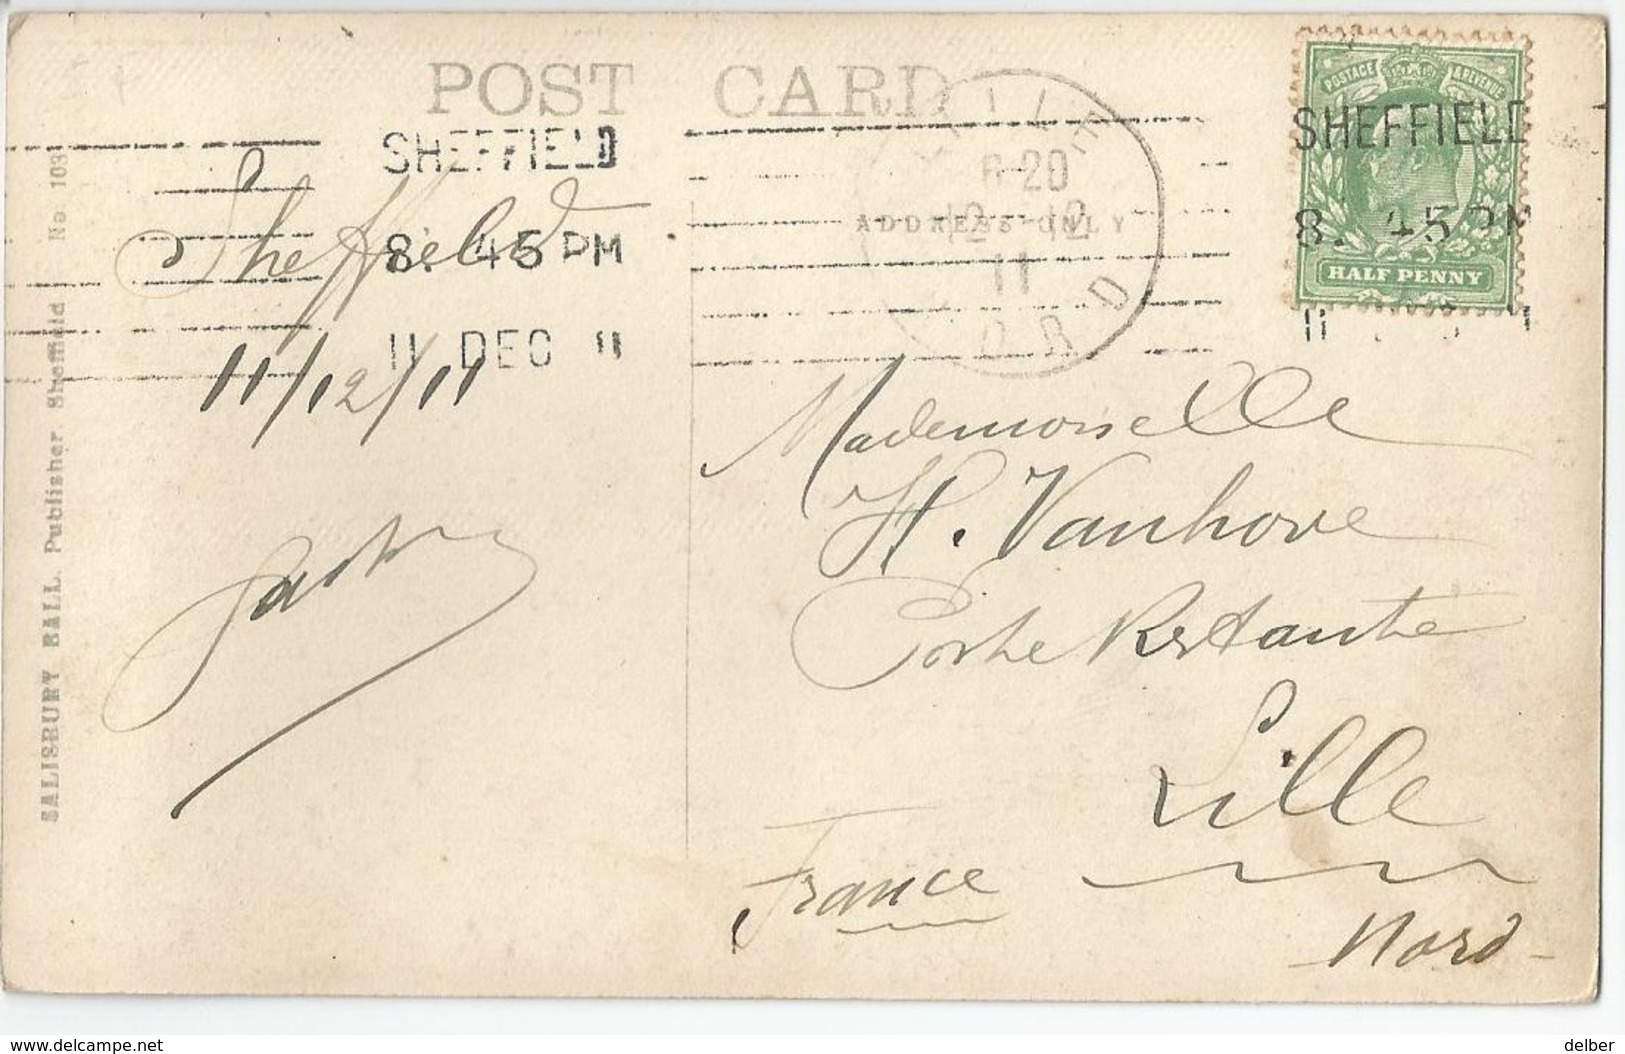 POST CARD
SHEFFIELD
8. 45 PM
11 DEC 11
SHEFFIELD
8. 45 PM
11
POSTAGE & REVENUE
HALF PENNY
LILLE
6-20
12 - 12
11
NORD
ADDRESS ONLY
SALISBURY BALL. Publisher. Sheffield No 108
Sheffield
11/12/11
Mademoiselle
H. Vanhove
Poste Restante
Lille
France
Nord
delcampe.net
delber